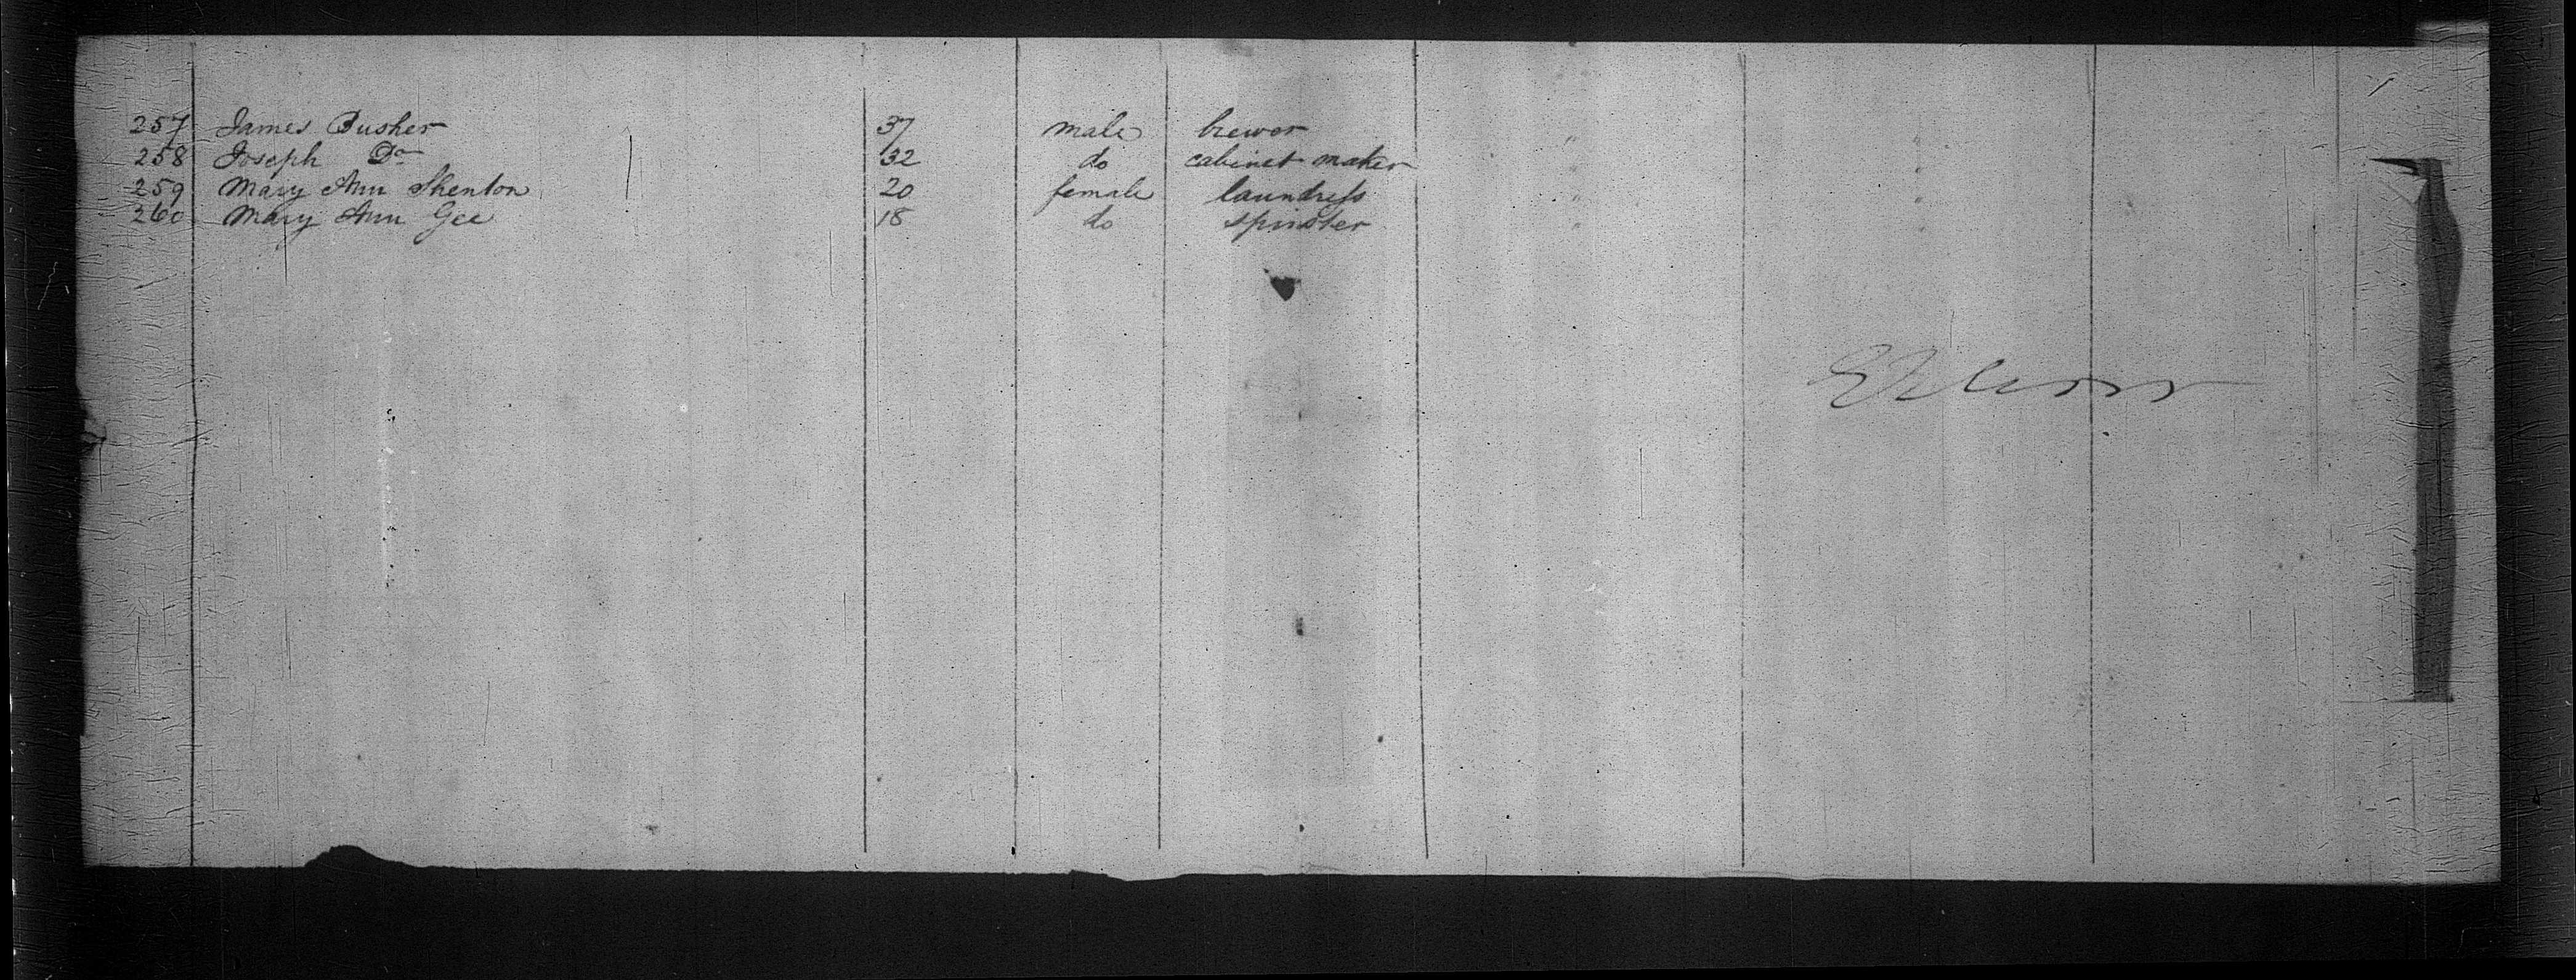 257 James Busher 37 male brewer " "
258 Joseph Do 32 do cabinet maker " "
259 Mary Ann Shenton 20 female laundress " "
260 Mary Ann Gee 18 do spinster " "